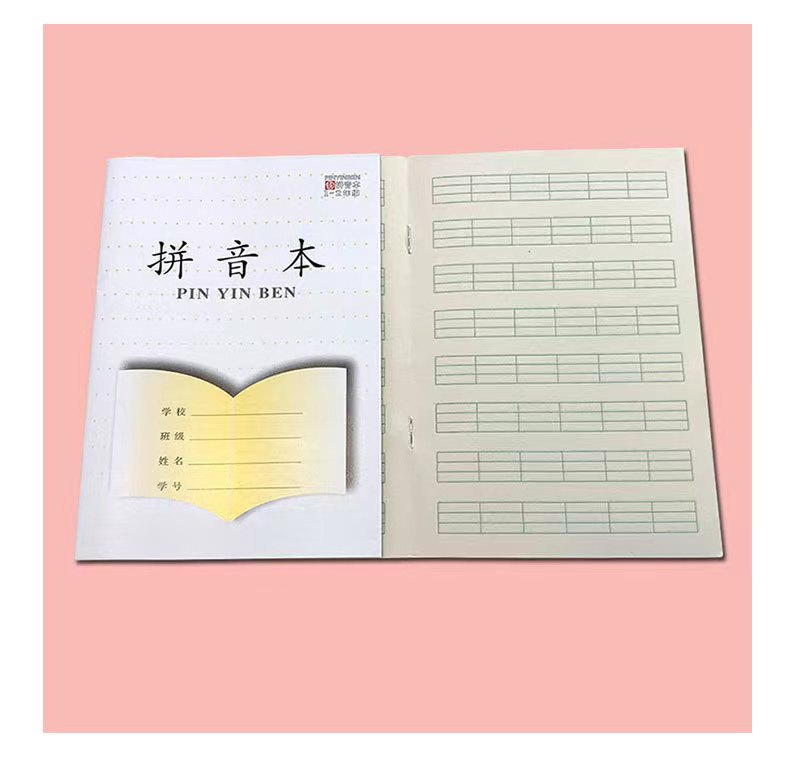 PINYINBEN
拼音本
拼音本
PIN YIN BEN
学校
班级
姓名
学号